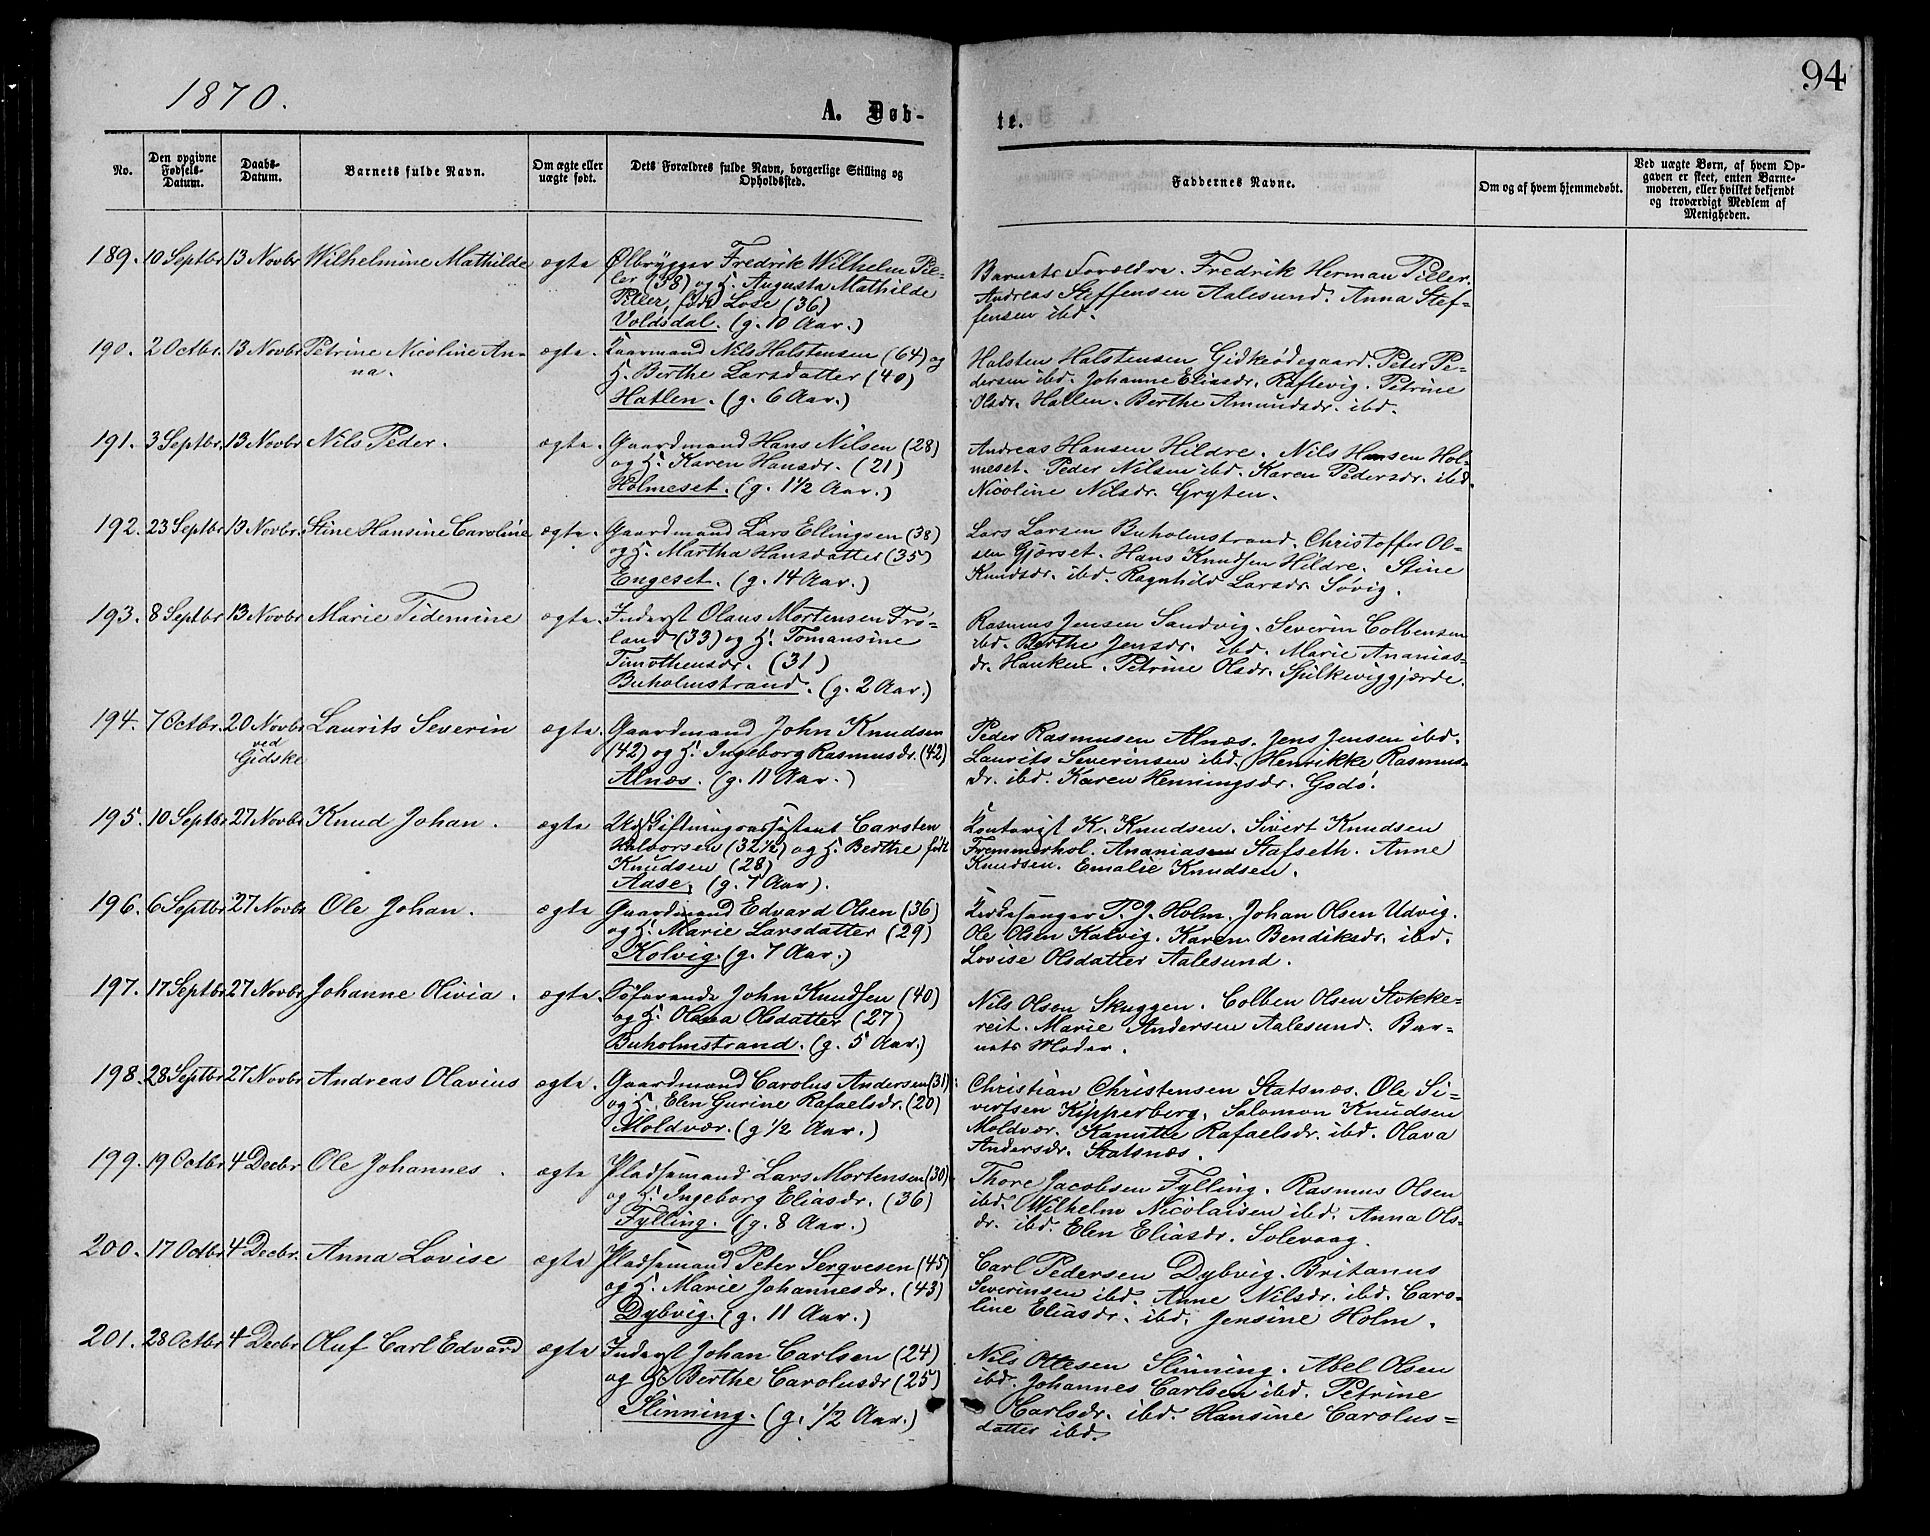 1870.
A. Døb-
te.
94
No.
Den opgivne
Fødsels-
Datum.
Daabs-
Datum.
Barnets fulde Navn.
Om ægte eller
uægte født.
Dets Forældres fulde Navn, borgerlige Stilling og
Opholdssted.
Faddernes Navne.
Om og af hvem hjemmedøbt.
Ved uægte Børn, af hvem Op-
gaven er skeet, enten Barne-
moderen, eller hvilket bekjendt
og troværdigt Medlem af
Menigheden.
189. 10 Septbr. 13 Novbr. Wilhelmine Mathilde ægte Ølbrygger Fredrik Wilhelm Pil-
ler (38) og H. Augusta Mathilde
Piller, født Lose (36)
Voldsdal. (g. 10 Aar.)
Barnets Forældre. Fredrik Herman Piller.
Andreas Steffensen Aalesund. Anna Stef-
fensen ibd.
190. 2 Octbr. 13 Novbr. Petrine Nicoline An-
na.
ægte. Kaarmand Nils Halstensen (64) og
H. Berthe Larsdatter (40)
Hatlen. (g. 6 Aar.)
Halsten Halstensen Gidskeødegaard. Peter Pe-
dersen ibd. Johanne Eliasdr. Raftevig. Petrine
Olsdr. Hatlen. Berthe Amundsdr. ibd.
191. 3 Septbr. 13 Novbr. Nils Peder. ægte. Gaardmand Hans Nilsen (28)
og H. Karen Hansdr. (21)
Holmeset. (g. 1 1/2 Aar.)
Andreas Hansen Hildre. Nils Hansen Hol-
meset. Peder Nilsen ibd. Karen Pedersdr. ibd.
Nicoline Nilsdr. Gryten.
192. 23 Septbr. 13 Novbr. Stine Hansine Caroline ægte. Gaardmand Lars Ellingsen (38)
og H. Martha Hansdatter (35)
Engeset. (g. 14 Aar.)
Lars Larsen Buholmstrand. Christoffer Ol-
sen Gjørset. Hans Knudsen Hildre. Stine
Knudsdr. ibd. Ragnhild Larsdr. Søvig.
193. 8 Septbr. 13 Novbr. Marie Tidemine ægte. Inderst Olaus Mortensen Frø-
land (33) og H. Tomansine
Timotheusdr. (31)
Buholmstrand. (g. 2 Aar.)
Rasmus Jensen Sandvig. Severin Colbensen
ibd. Berthe Jensdr. ibd. Marie Ananias-
dr. Hanken. Petrine Olsdr. Spilkeviggjærde.
194. 7 Octbr. 20 Novbr. Laurits Severin ægte. Gaardmand John Knudsen
ved
Gidske
(42) og H. Ingeborg Rasmusdr. (42)
Alnæs. (g. 11 Aar.)
Peder Rasmusen Alnæs. Jens Jensen ibd.
Laurits Severinsen ibd. Henrikke Rasmus-
dr. ibd. Karen Henningsdr. Godø.
195. 10 Septbr. 27 Novbr. Knud Johan. ægte Udskiftningsassistent Carsten
Halvorsen (32 1/2) og H. Berthe født
Knudsen (28)
Aase. (g. 7 Aar).
Kontorist K. Knudsen. Sivert Knudsen
Fremmerhol. Ananiasen Stafseth. Anne
Knudsen. Emalie Knudsen.
196. 6 Septbr. 27 Novbr. Ole Johan. ægte Gaardmand Edvard Olsen (36)
og H. Marie Larsdatter (29)
Kolvig. (g. 7 Aar.)
Kirkesanger P. J. Holm. Johan Olsen Udvig.
Ole Olsen Kalvig. Karen Bendiksdr. ibd.
Lovise Olsdatter Aalesund.
197. 17 Septbr. 27 Novbr. Johanne Olivia. ægte. Søfarende John Knudsen (40)
og H. Olava Olsdatter (27)
Buholmstrand. (g. 5 Aar.)
Nils Olsen Skuggen. Colben Olsen Stokke-
reit. Marie Andersen Aalesund. Bar-
nets Moder.
198. 28 Septbr. 27 Novbr. Andreas Olavius ægte. Gaardmand Carolus Andersen (31)
og H. Elen Gurine Rafaelsdr. (20)
Moldvær. (g 1/2 Aar.)
Christian Christensen Statsnæs. Ole Si-
vertsen Kipperberg. Salomon Knudsen
Moldvær. Kanutte Rafaelsdr. ibd. Olava
Andersdr. Statsnæs.
199. 19 Octbr. 4 Decbr. Ole Johannes. ægte Pladsemand Lars Mortensen (30)
og H. Ingeborg Eliasdr. (36)
Fylling. (g. 8 Aar.)
Thore Jacobsen Fylling. Rasmus Olsen
ibd. Wilhelm Nicolaisen ibd. Anna Ols-
dr. ibd. Elen Eliasdr. Solevaag.
200. 17 Octbr. 4 Decbr. Anna Lovise ægte Pladsemand Peter Serqvesen (45)
og H. Marie Johannesdr. (43)
Dybvig. (g. 11 Aar.)
Carl Pedersen Dybvig. Britanus
Severinsen ibd. Anne Nilsdr. ibd. Caro-
line Eliasdr. ibd. Jensine Holm.
201. 28 Octbr. 4 Decbr. Oluf Carl Edvard ægte Inderst Johan Carlsen (24)
og H. Berthe Carolusdr (25)
Slinning. (g. 1/2 Aar.)
Nils Ottesen Slinning. Abel Olsen
ibd. Johannes Carlsen ibd. Petrine
Carlsdr. ibd. Hansine Carolus-
datter ibd.